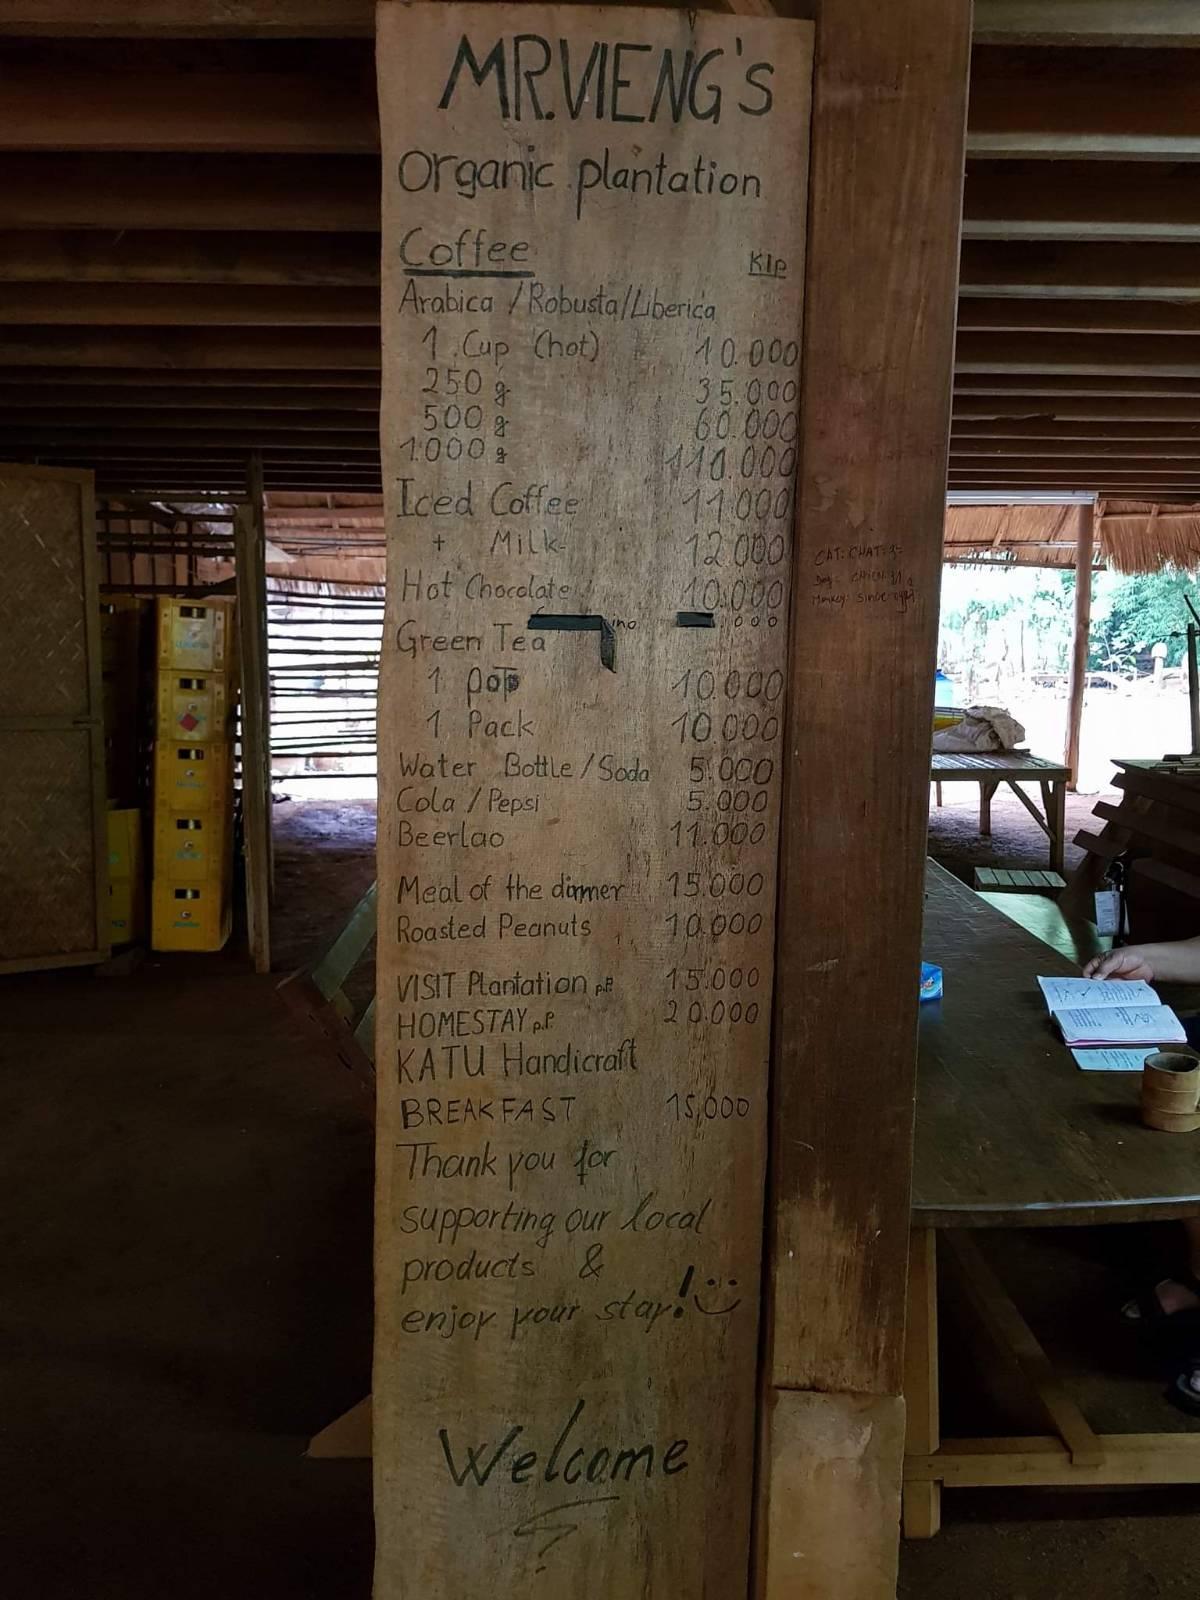 MR.VIENG'S
Organic plantation
Coffee Kip
Arabica / Robusta/Liberica
1 Cup (hot) 10.000
250 g 35.000
500 g 60.000
1000 g 110.000
Iced Coffee 11.000
+ Milk 12.000
Hot Chocolate 10.000
Green Tea
1 Pot 10.000
1 Pack 10.000
Water Bottle / Soda 5.000
Cola / Pepsi 5.000
Beerlao 11.000
Meal of the dinner 15.000
Roasted Peanuts 10.000
VISIT Plantation p.P. 15.000
HOMESTAY p.P. 20.000
KATU Handicraft
BREAKFAST 15,000
Thank you for
supporting our local
products &
enjoy your stay!
Welcome